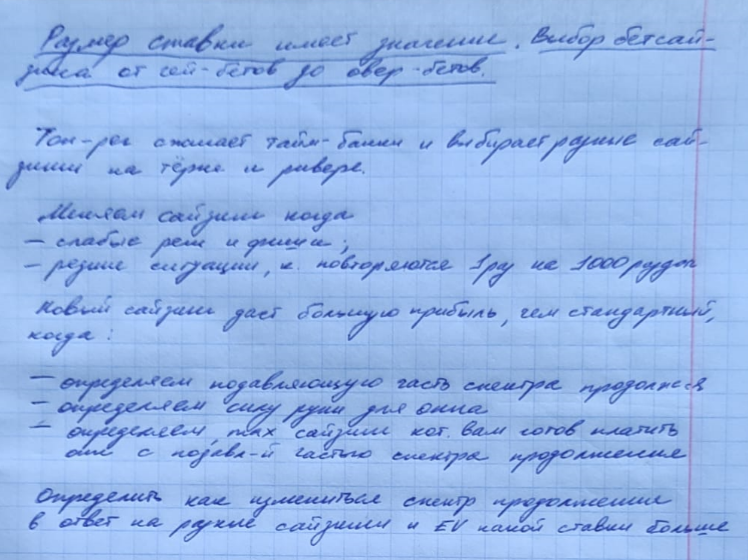 Размер ставки имеет значение. Выбор бетсай-
зинга от сей-бетов до овер-бетов.
Топ-рег сжигает тайм-банки и выбирает разные сай-
зинги на тёрне и ривере.
Меняем сайзинги когда
– слабые реги и фиши;
– редкие ситуации, к. повторяются 1 раз на 1000 раздач
Новый сайзинг даст большую прибыль, чем стандартный,
когда:
– определяем подавляющую часть спектра продолжения
– определяем силу руки для оппа
– определяем max сайзинг кот. вам готов платить
опп с подавл-й частью спектра продолжения
Определить как измениться спектр продолжения
в ответ на разные сайзинги и EV какой ставки больше